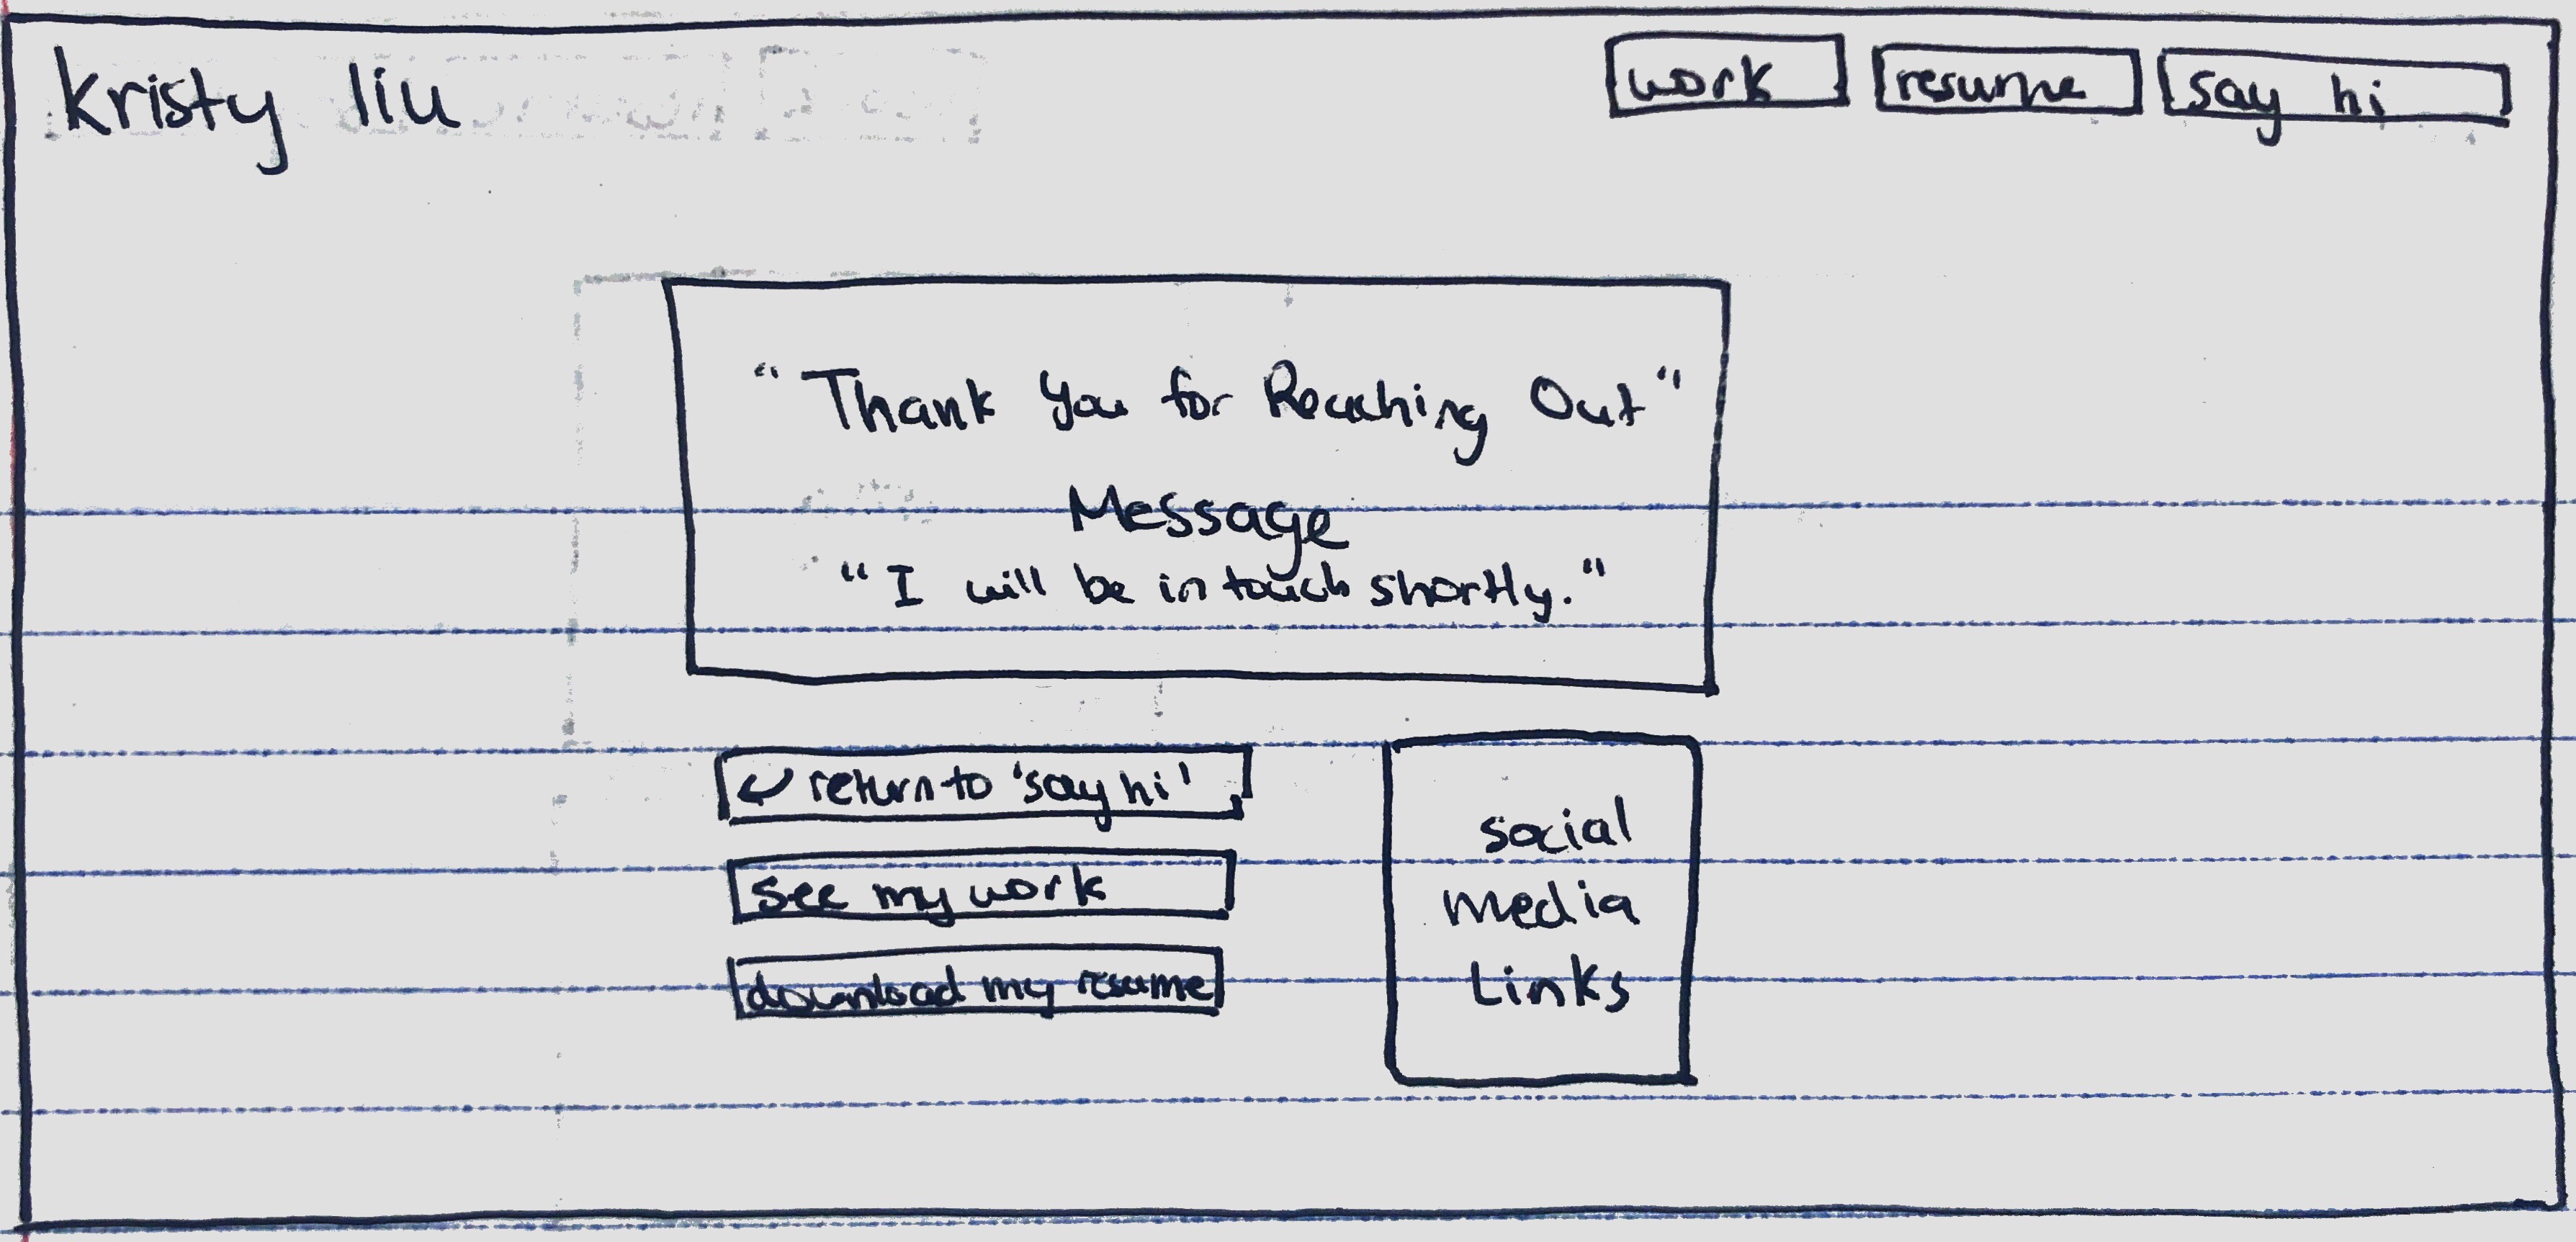 kristy liu
work
resume
say hi
"Thank You for Reaching Out"
Message
"I will be in touch shortly."
return to 'say hi'
see my work
download my resume
social
media
Links